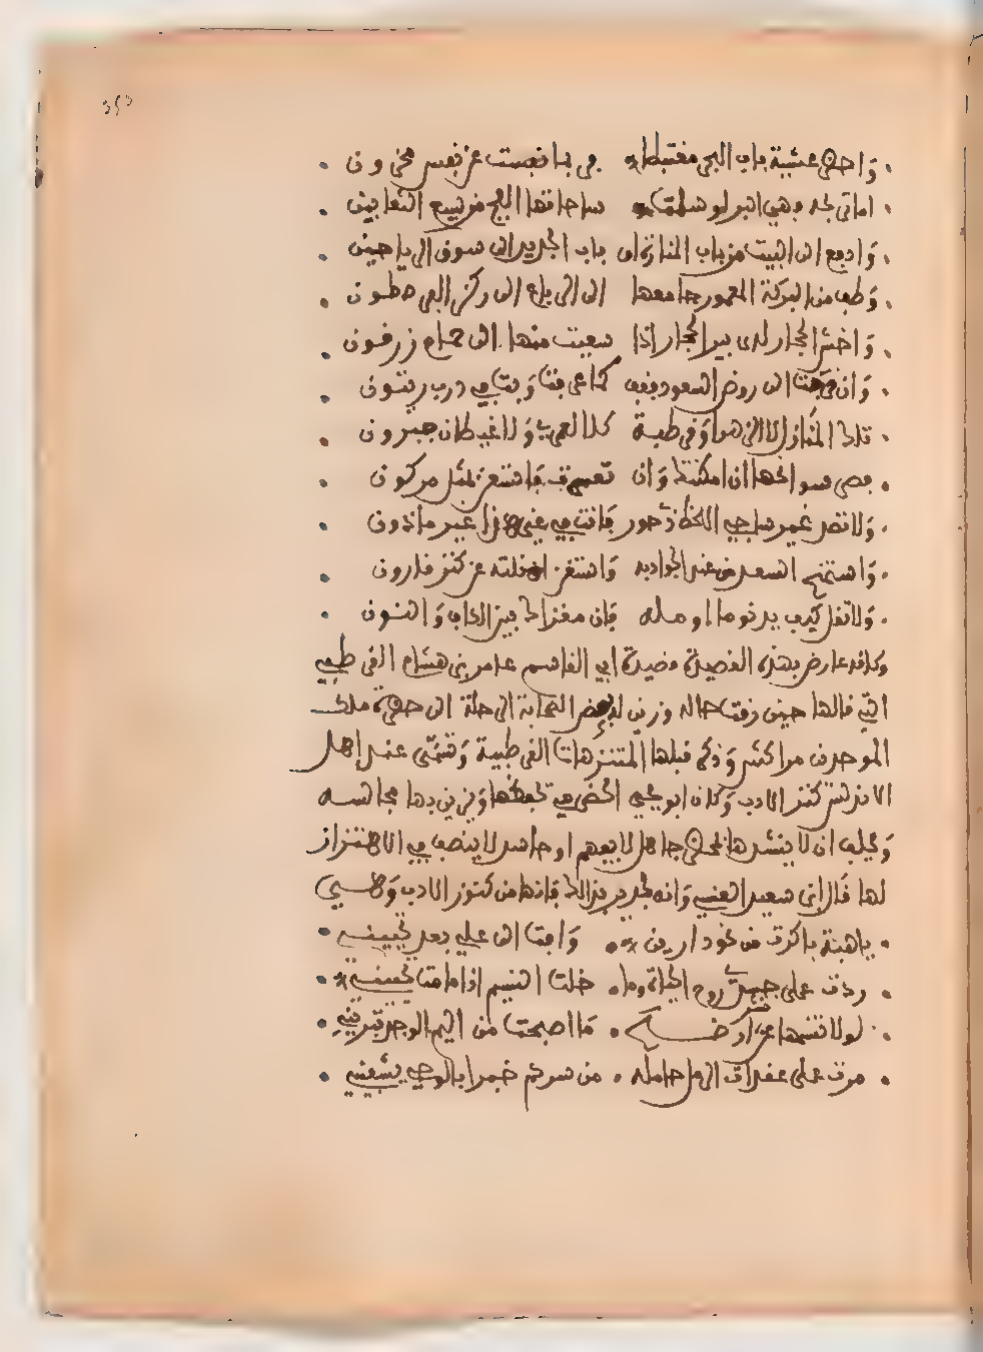 واحضر عشية باب البحر مغتبطا في ما نفست عن نفس محزون
اما ترى وهي البر لو سلمت ساحاتها البيح من لسع الثعابين
وادفع الى البيت من باب المنازه او باب الحديد الى سوق الرياحين
وطف من البركة المعمور جامعها الى الرباع الى ركن
واخش الحجار لدى بير الحجار اذا سعيت منها الى حمام زرقون
وان الى روض السعود فقف كما عرفت وبت في درب ريتون
تلك المنازل لا الزهرا وقرطبة كلا لعمري ولا غيطان جيرون
ان امكنتك وان تعسرت فاستعن بمثل مركون
ولا تصد غير ساجي اللحظ ذي حور فانت في غير هذا غير ماذون
واستمنح السعد من عند الجواد به واستغن ان نلته عن كنز قارون
ولا تقل كيف يدنو ما اومله فان مغزاك بين الكاف والنون
وكانه عارض بهذه القصيدة قصيدة ابي القاسم عامر بن هشام القرطبي
التي قالها حين رقت حاله وزين له بعض اصحابه الرحلة الى حضرة ملك
الموحدين مراكش وذكر قبلها المتنزهات القرطبية وتسمى عند اهل
الاندلس كنز الادب وكان ابو يحيى الحضرمي يحفظها ويزين بها مجالسه
ويحلف ان لا ينشدها بمحضر جاهل لا يفهم او حاسد لا ينصف في الاهتزاز
لها قال ابن سعيد العنسي وانه لجدير بذلك فانها من كنوز الادب وهي
يا هبة باكرت من نحو دارين وافت الي على بعد تحييني
ردت على جسدي روح الحياة وما خلت النسيم اذا ما مت يحييني
لولا تنسمها من نشر ارضكم ما اصبحت من اليم الوجد تبريني
مرت على عقدات الرمل حاملة من سركم خبرا بالوحي يشفيني